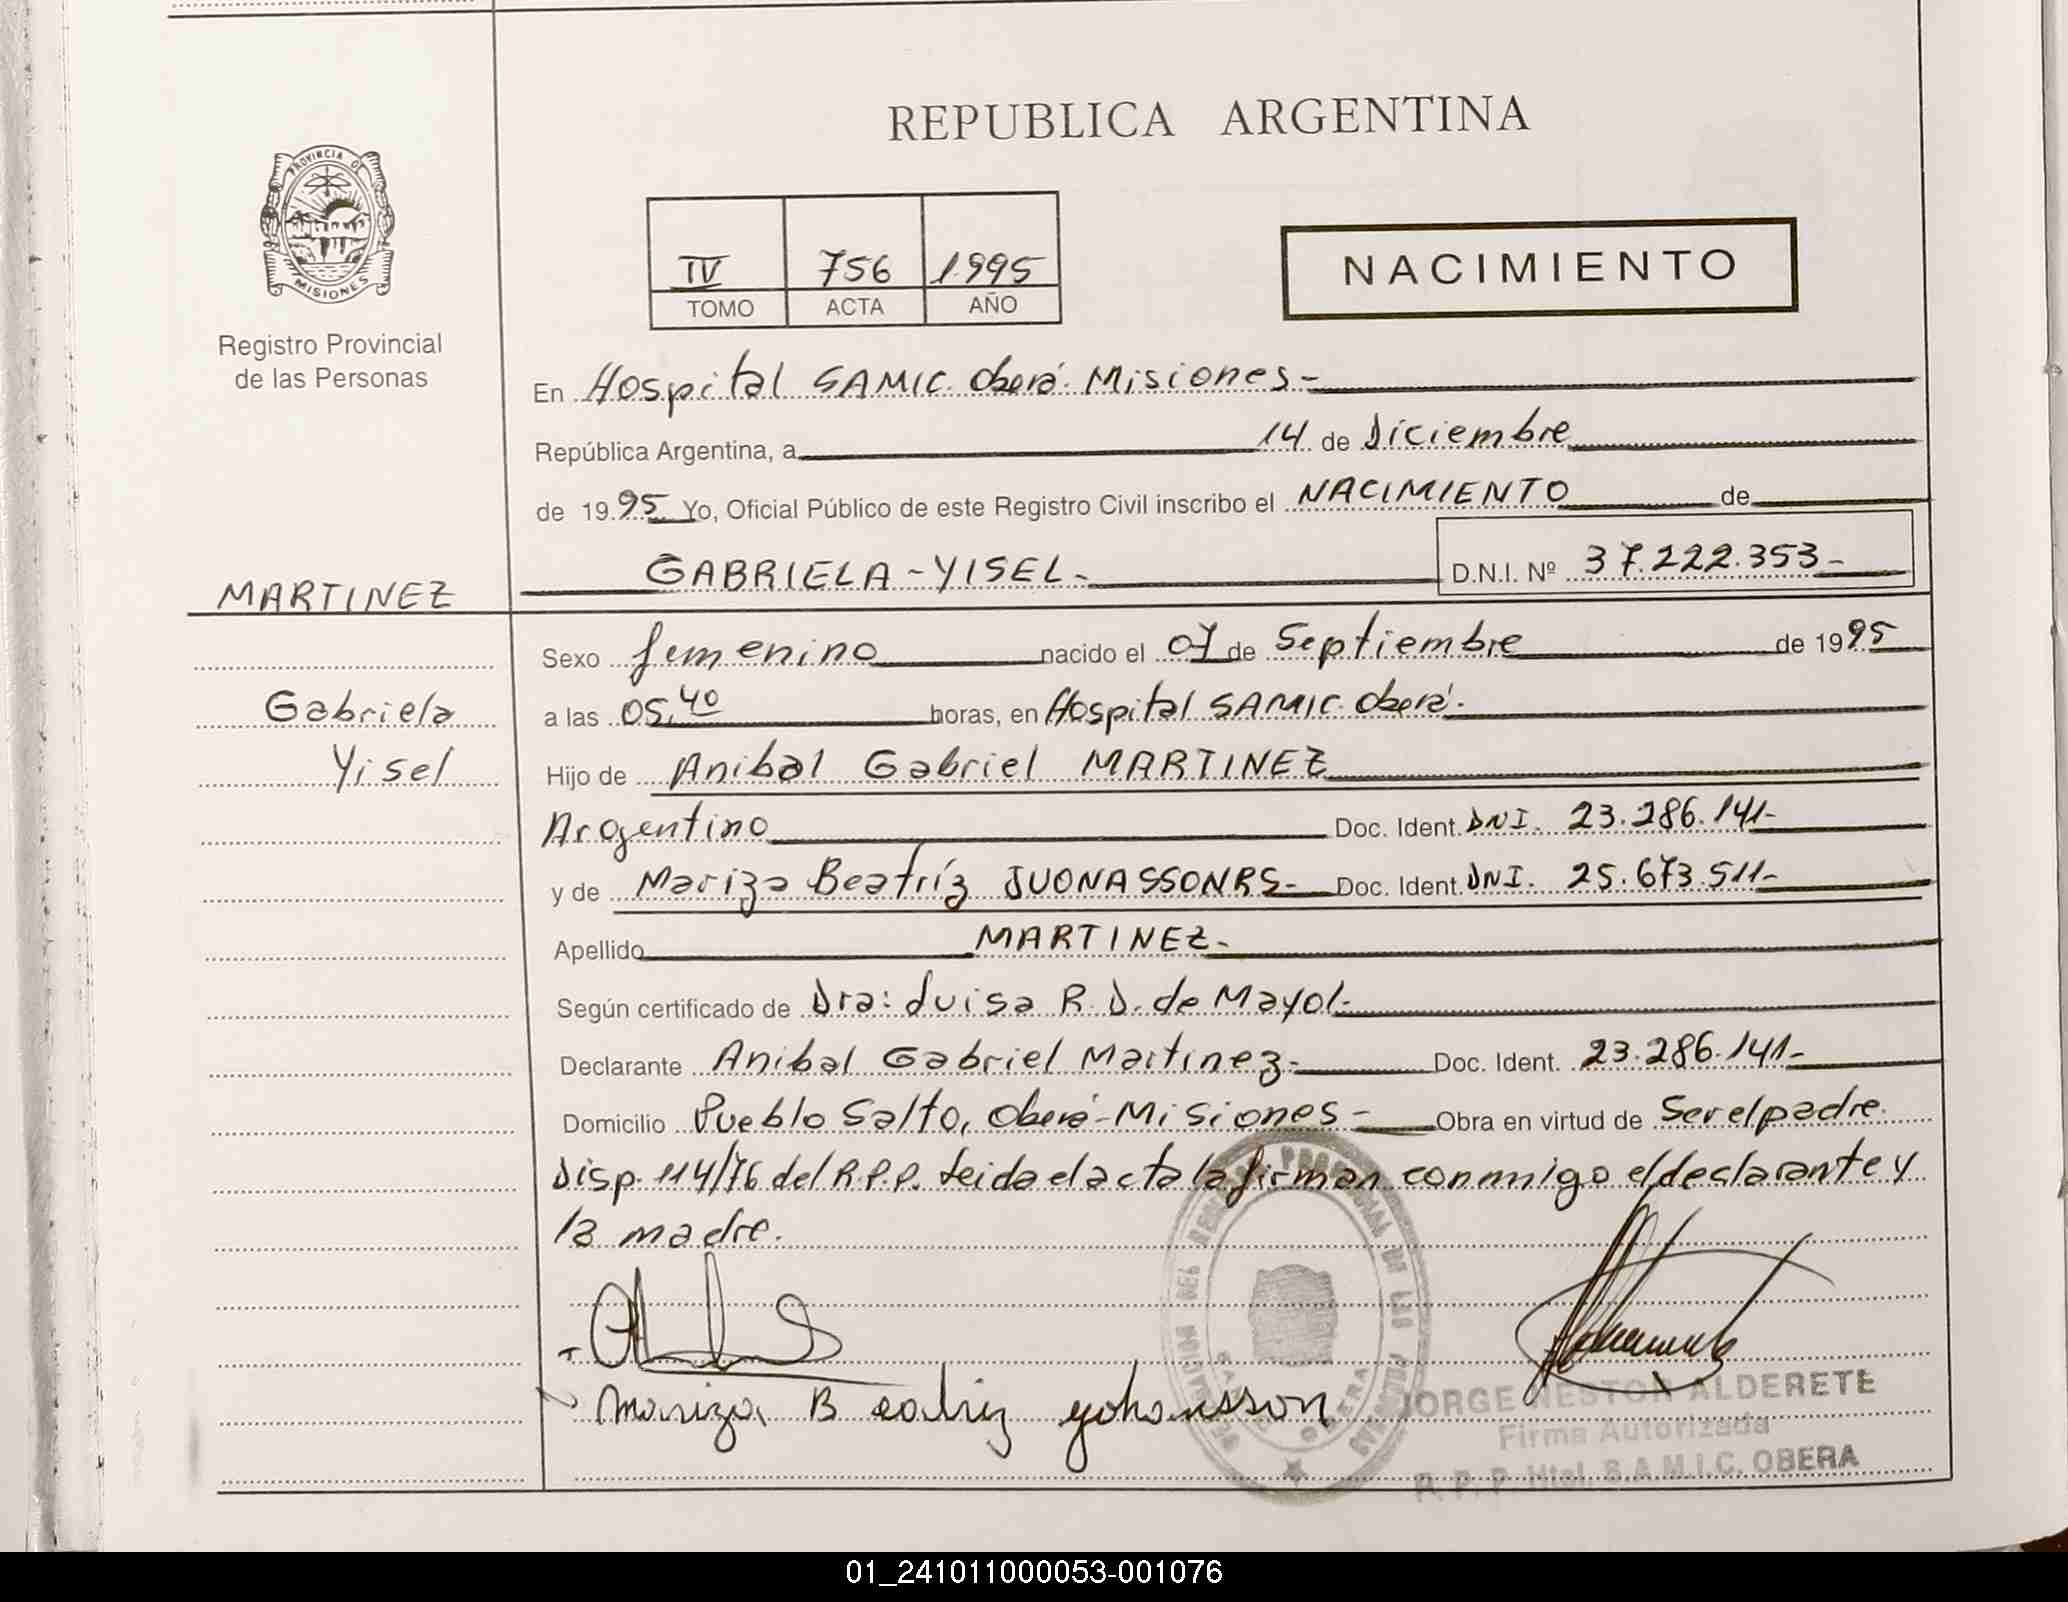 REPUBLICA ARGENTINA
PROVINCIA DE
MISIONES
Registro Provincial
de las Personas
IV 756 1995
TOMO ACTA AÑO
NACIMIENTO
En Hospital SAMIC. Oberá. Misiones-
República Argentina, a 14 de Diciembre
de 1995 Yo, Oficial Público de este Registro Civil inscribo el NACIMIENTO de
GABRIELA-YISEL- D.N.I. Nº 37.222.353-
MARTINEZ
Gabriela
Yisel
Sexo femenino nacido el 07 de Septiembre de 1995
a las 05,40 horas, en Hospital SAMIC. Oberá.
Hijo de Anibal Gabriel MARTINEZ
Argentino Doc. Ident. DNI. 23.286.141-
y de Mariza Beatríz JUONASSONRS- Doc. Ident. DNI. 25.673.511-
Apellido MARTINEZ-
Según certificado de Dra: Luisa R. D. de Mayol-
Declarante Anibal Gabriel Martinez- Doc. Ident. 23.286.141-
Domicilio Pueblo Salto, Oberá-Misiones- Obra en virtud de Ser el padre.
Disp. 114/76 del R.P.P. Leida el acta la firman conmigo el declarante y
la madre.
Mariza Beatriz yohansson
JORGE NESTOR ALDERETE
Firma Autorizada
R. P. P. Htal. S.A.M.I.C. OBERA
01_241011000053-001076